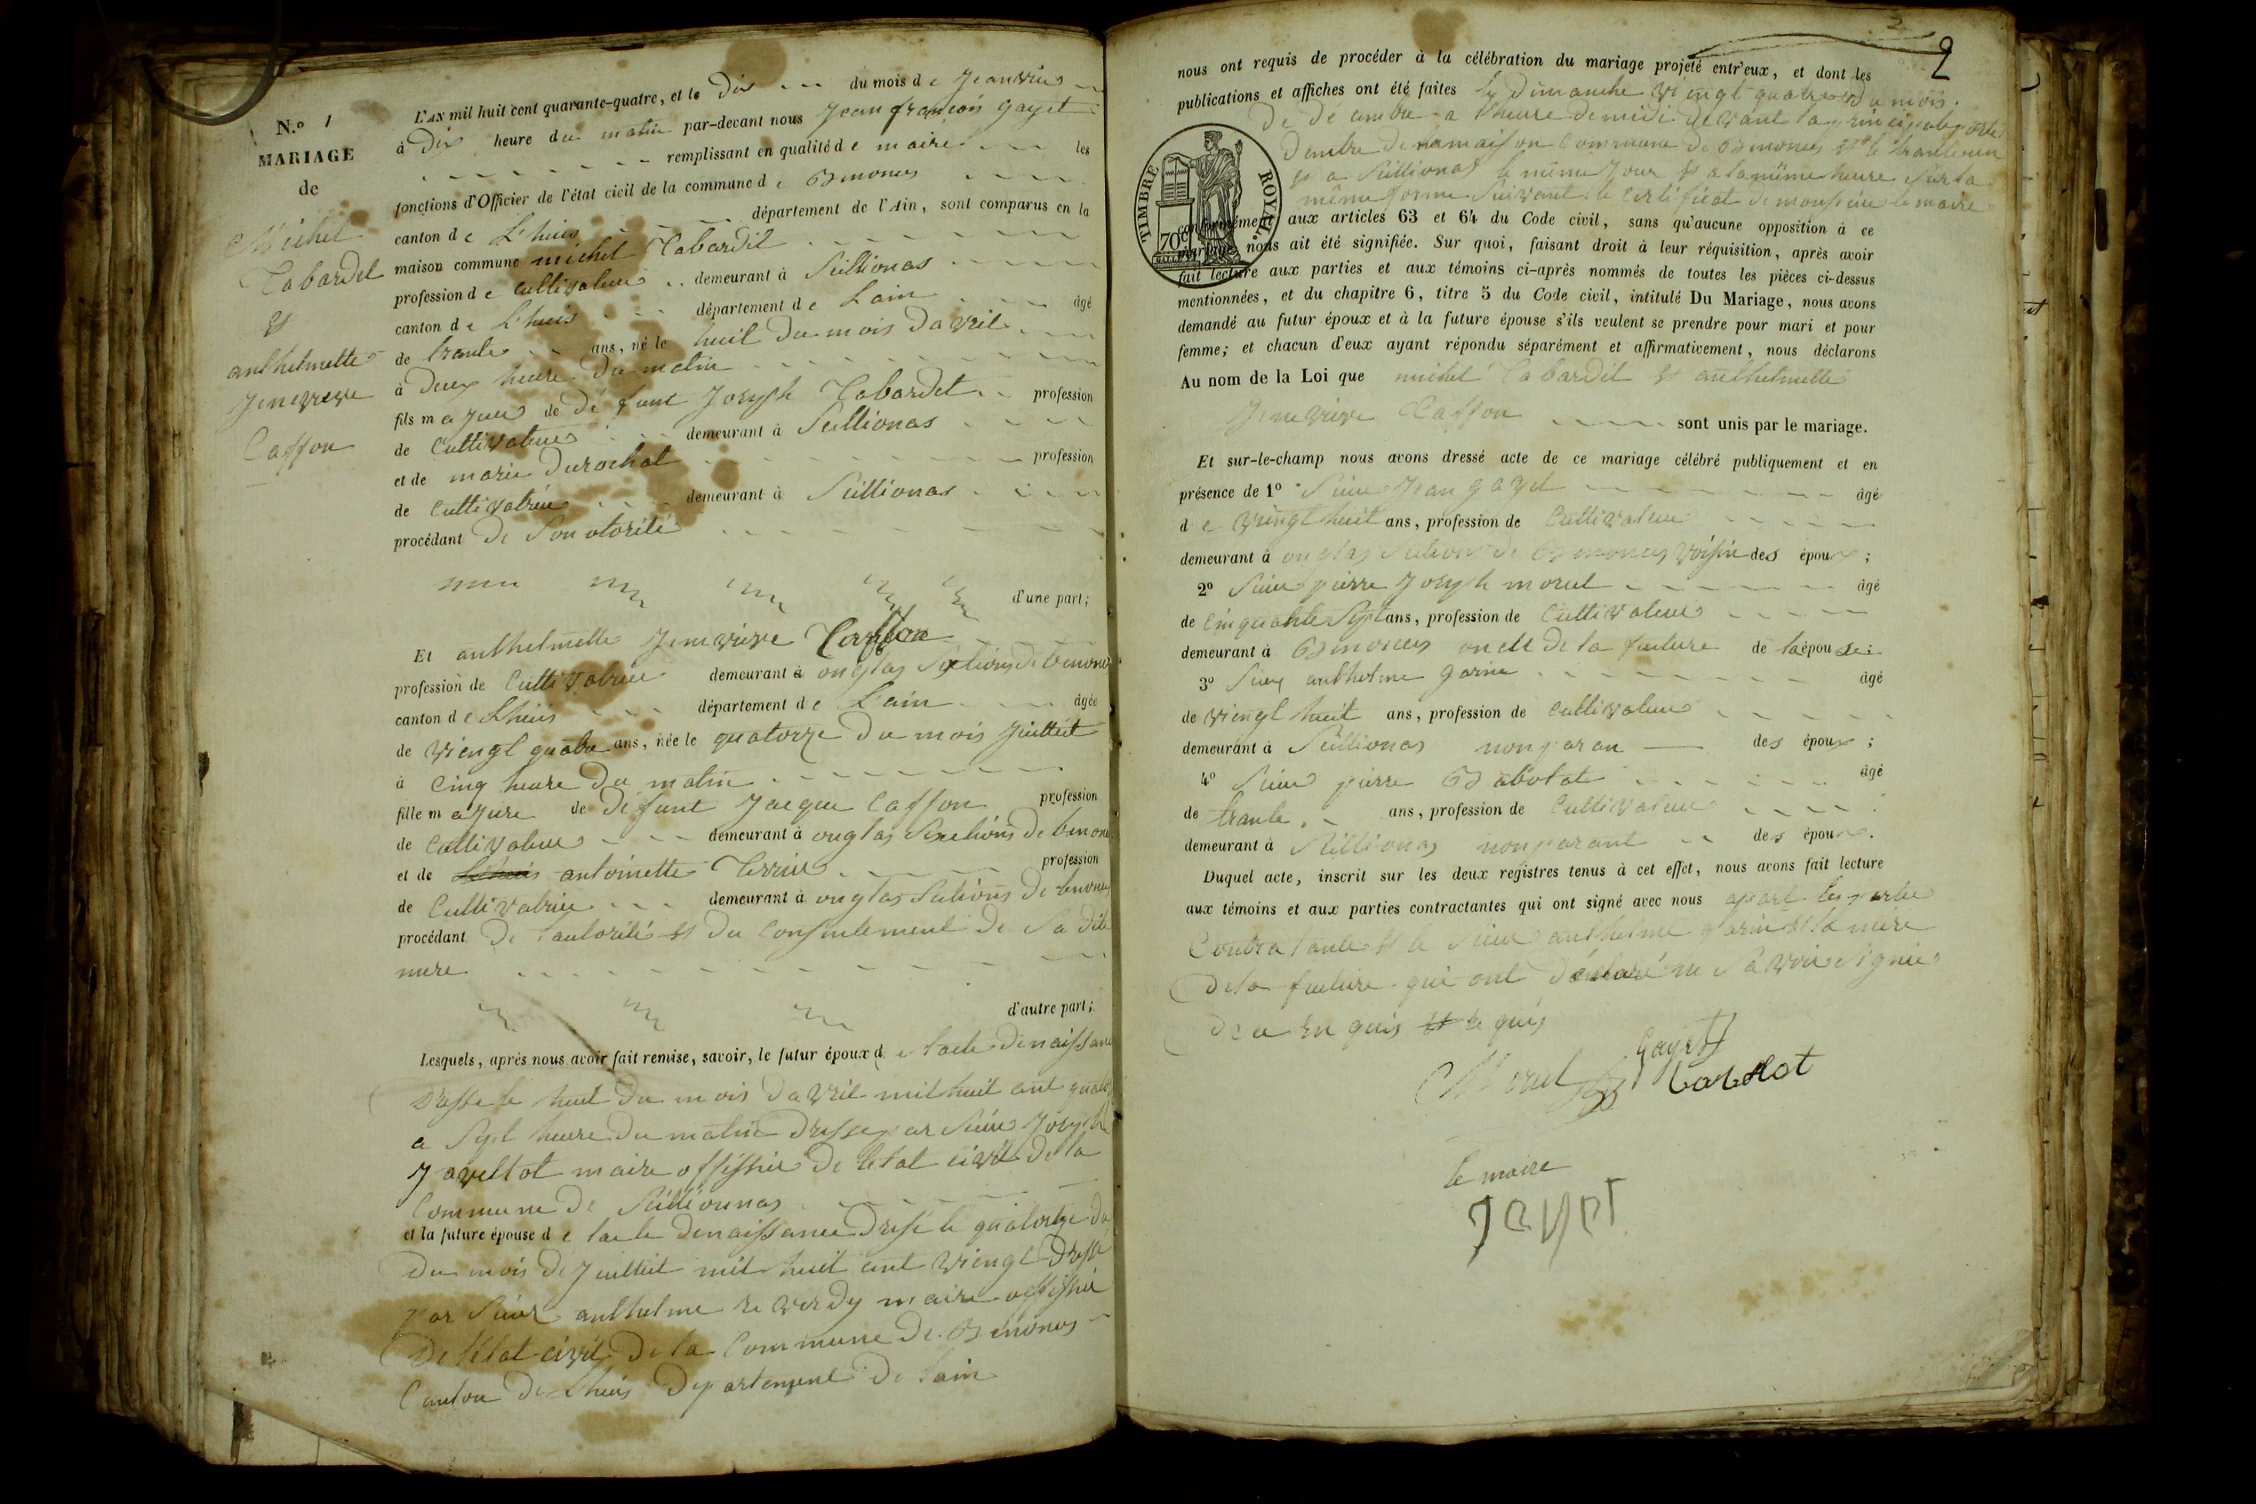 N.º 1
MARIAGE
de
Michel
Cabardet
et
anthelmette
Jenevieve
Caffon
L'AN mil huit cent quarante-quatre, et le Dix du mois de Jeanvier
à Dix heure du matin par-devant nous Jean françois gayet
remplissant en qualité de maire les
fonctions d'Officier de l'état civil de la commune de Bénonces
canton de L'huis département de l'Ain, sont comparus en la
maison commune michel Cabardet
profession de Cultivateur demeurant à Seillionas
canton de L'huis département de L'ain âgé
de trante ans, né le huit du mois d'avril
à Deux heure du matin
fils majeur de Défunt Joseph Cabardet profession
de Cultivateur demeurant à Seillionas
et de marie Durochat profession
de Cultivatrice demeurant à Seillionas
procédant De Son otorité
d'une part;
Et anthelmette Jenevieve Caffon
profession de Cultivatrice demeurant à onglas Sextions de benonces
canton de Lhuis département de L'ain âgée
de viengt quatre ans, née le quatorze du mois Juillet
à Cinq heure du matin
fille majure de Défunt Jacque Caffon profession
de Cultivateur demeurant à onglas Sextions de benonces
et de antoinette Terrier profession
de Cultivatrice demeurant à onglas Sections De benonces
procédant De l'autorité et du Consentement de Sa dite
mere
d'autre part;
Lesquels, après nous avoir fait remise, savoir, le futur époux de lacte de naissance
Dressé le huit du mois davril mil huit cent quatorze
a Sept heure du matin Dressé par Sieur Joseph
maire offissier De letat civil De la
Commune De Seillionnas
et la future épouse de lacte De naissance Dressé le quatorze du
du mois de Juillet mil huit cent viengt Dressé
par Sieur anthelme reverdy maire offissier
De létat civil De la Commune De Bénonces
Canton De Lhuis Departement De Lain
2
nous ont requis de procéder à la célébration du mariage projeté entr'eux, et dont les
publications et affiches ont été faites les Dimanche viengt quatre du mois
De Décembre a lheure De midi devant la principale porte
Dentre De la maison Commune de Bénonces et le trante un
et a Seillionas le même Jour et a la même heure Sur la
même forme Suivant le Certificat De monsieur le maire
TIMBRE ROYAL.
70c
conformément aux articles 63 et 64 du Code civil, sans qu'aucune opposition à ce
mariage nous ait été signifiée. Sur quoi, faisant droit à leur réquisition, après avoir
fait lecture aux parties et aux témoins ci-après nommés de toutes les pièces ci-dessus
mentionnées, et du chapitre 6, titre 5 du Code civil, intitulé Du Mariage, nous avons
demandé au futur époux et à la future épouse s'ils veulent se prendre pour mari et pour
femme; et chacun d'eux ayant répondu séparément et affirmativement, nous déclarons
Au nom de la Loi que michel Cabardet et anthelmette
Jenevieve Caffon sont unis par le mariage.
Et sur-le-champ nous avons dressé acte de ce mariage célébré publiquement et en
présence de 1º Sieur Jean gayet âgé
de viengt huit ans, profession de Cultivateur
demeurant à onglas Section de Bénonces voisin des époux;
2º Sieur pierre Joseph morel âgé
de Cinquante Sept ans, profession de Cultivateur
demeurant à Bénonces oncle De la future de la épouse;
3º Sieur anthelme garin âgé
de viengt huit ans, profession de Cultivateur
demeurant à Seillionas non paran des époux;
4º Sieur pierre Babolat âgé
de trante ans, profession de Cultivateur
demeurant à Seillionas non parant des époux.
Duquel acte, inscrit sur les deux registres tenus à cet effet, nous avons fait lecture
aux témoins et aux parties contractantes qui ont signé avec nous apart les partie
Contratante et le Sieur anthelme garin et la mere
De la future qui ont Déclaré ne Savoir Signier
De ce En quis et re quis
Morel Gayet babolat
le maire
gayet